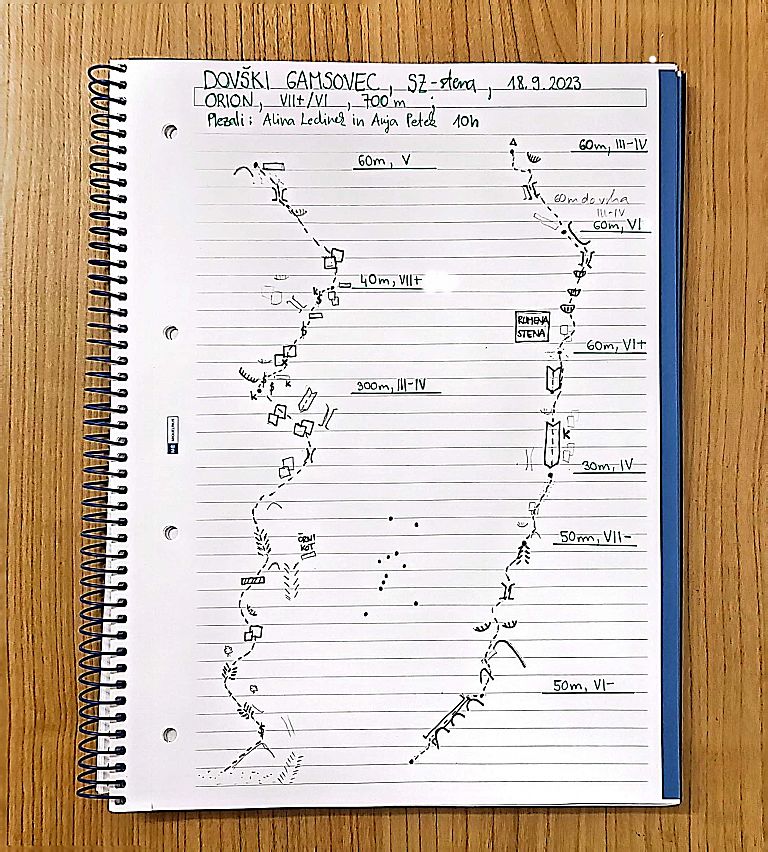 DOVŠKI GAMSOVEC, SZ-stena, 18.9.2023
ORION, VII+/VI, 700m;
Plezali: Alina Ledinek in Anja Petek 10h
60m, V
K
40m, VII+
K
K
300m, III-IV
ČRNI
KOT
60m, III-IV
60m dolvna
III-IV
60m, VI
RUMENA
STENA
60m, VI+
K
30m, IV
50m, VII-
50m, VI-